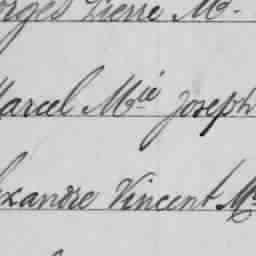 orges Pierre M.
Marcel M^ié Joseph
exandre Vincent M